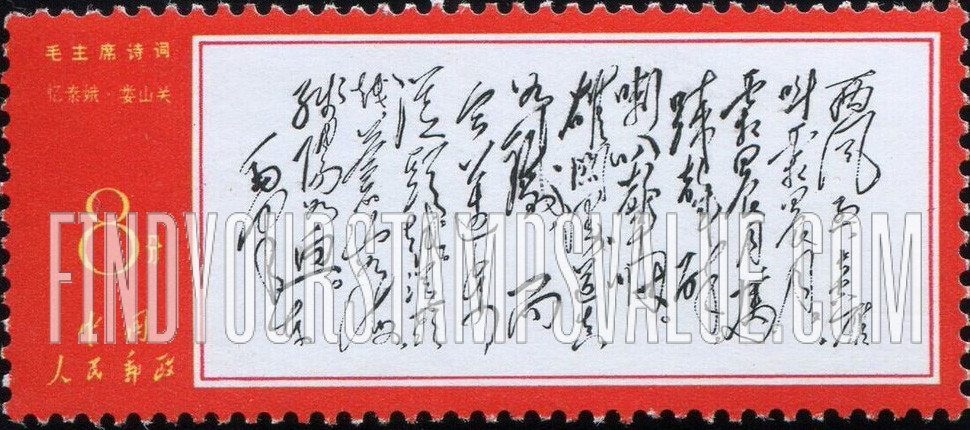 毛主席诗词
忆秦娥·娄山关
8分
中国
人民邮政
西风烈長空雁
叫霜晨月。
霜晨月馬
蹄声碎
喇叭声咽。
雄関漫道真
如鉄而
今迈步
从头越。从头
越苍山如海
残阳如血。
毛泽东
FINDYOURSTAMPSVALUE.COM